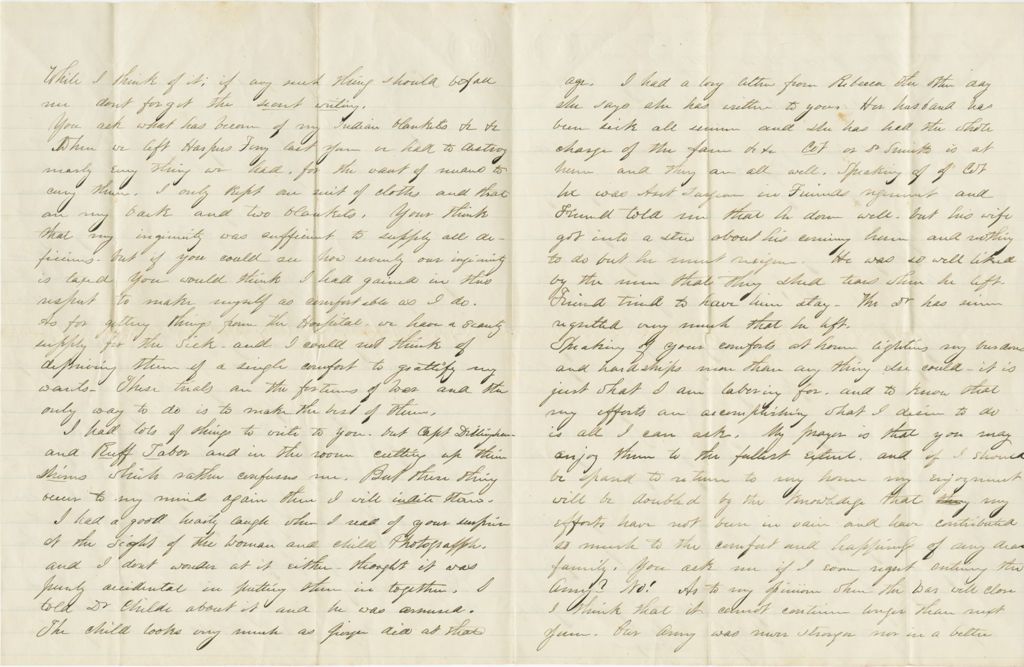 While I think of it; if any such thing should befall
me dont forget the secret writing.
You ask what has become of my Indian blankets &c &c
When we left Harpers Ferry last year we had to destroy
nearly every thing we had, for the want of means to
carry them. I only kept one suit of cloths and that
on my back and two blankets. Your think
that my ingenuity was sufficient to supply all de-
ficiencies. but if you could see how severely our ingenuity
is taxed You would think I had gained in this
respect to make myself as comfortable as I do.
As for getting things from the Hospital, we have a scanty
supply for the Sick. and I could not think of
depriving them of a single comfort to gratify my
wants. These trials are the fortunes of War and the
only way to do is to make the best of them.
I had lots of things to write to you. but Capt Dillingham
and Ruff Tabor and in the room cutting up their
which rather confuses me. But these thing
occur to my mind again then I will indite them.
I had a good hearty laugh when I read of your surprise
at the Sight of the Woman and child Photograph.
and I dont wonder at it either. thought it was
purely accidental in putting them in together. I
told Dr Childe about it and he was amused.
The child looks very much as George did at that
age. I had a long letter from Rebecca the other day
she says she has written to you. Her husband has
been sick all summer and she has had the whole
charge of the farm &c &c or Dr Smith is at
home and they are all well. Speaking of
he was Asst Surgeon in Friends regiment and
Friend told me that he done well. but his wife
got into a stew about his coming home and nothing
to do but he must resign. He was so well liked
by the men that they shed tears when he left.
Friend tried to have him stay. The Dr has since
regretted very much that he left.
Speaking of your comforts at home lightens my burdens
and hardships more than any thing else could. it is
just what I am laboring for. and to know that
my efforts are accomplishing what I desire to do
is all I can ask. My prayer is that you may
enjoy them to the fullest extent. and if I should
be spared to return to my home my enjoyment
will be doubled by the knowledge that my
efforts have not been in vain and have contributed
so much to the comfort and happiness of my dear
family. You ask me if I ever regret entering the
Army? No! As to my opinion when the War will close
I think that it cannot continue longer than next
year. Our Army was never stronger nor in a better